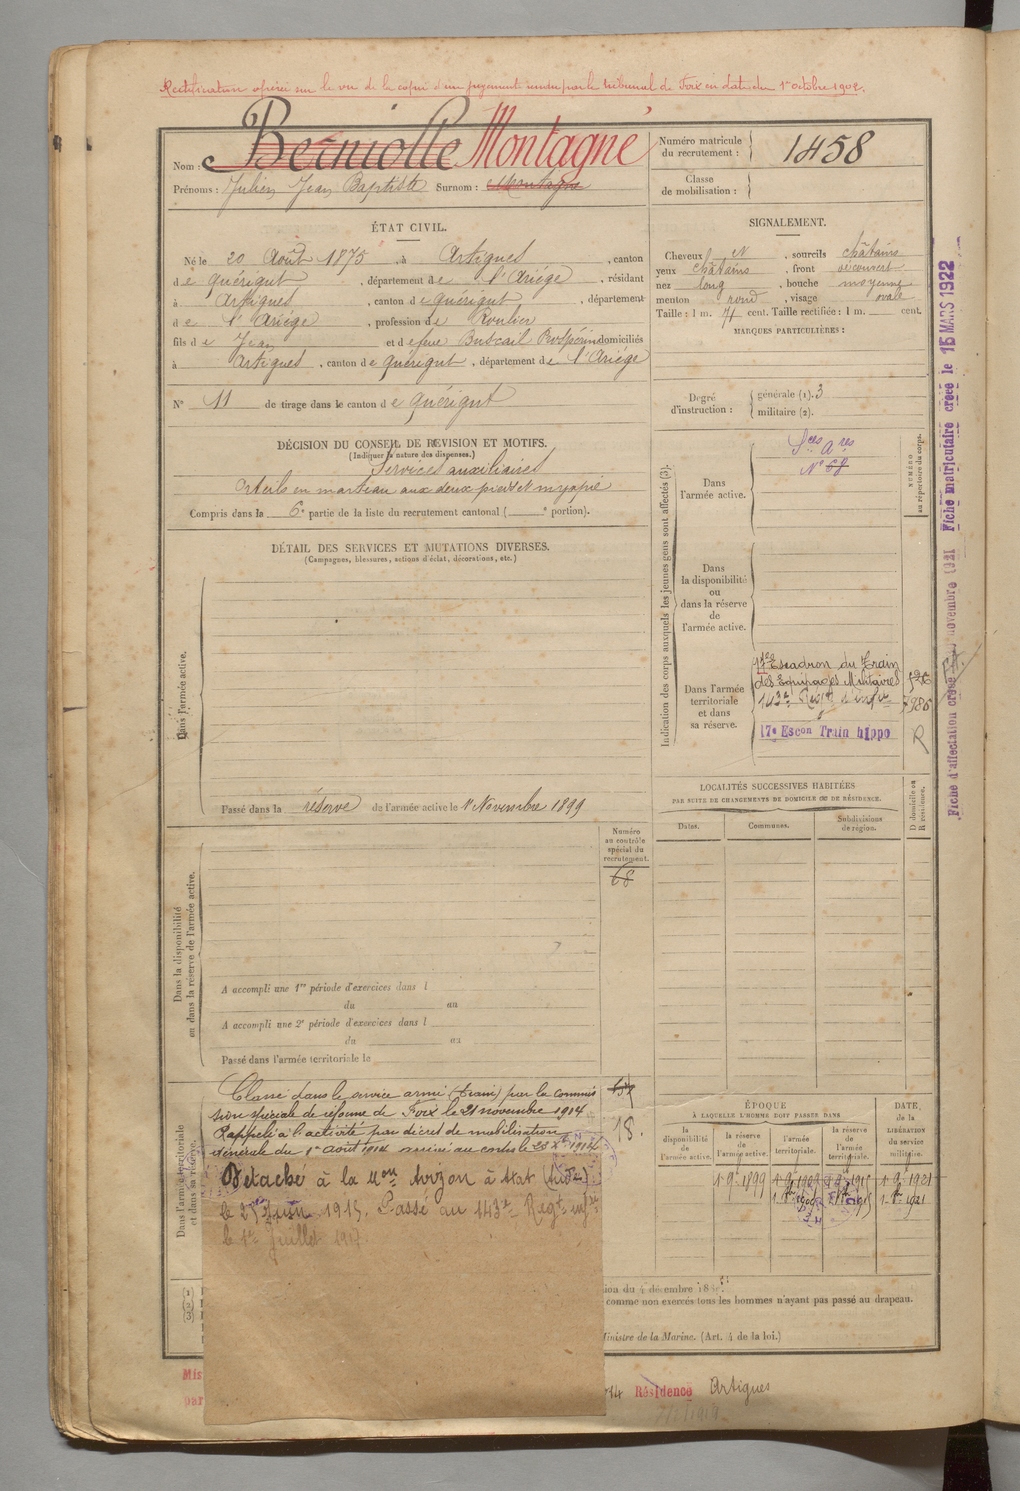 Rectification opérée sur le vu de la copie d'un jugement rendu par le tribunal de Foix en date du 1er octobre 1902.
Nom : Berniolle Montagné
Prénoms : Julien Jean Baptiste Surnom : Montagné
Numéro matricule du recrutement : 1458
Classe de mobilisation :
ÉTAT CIVIL.
Né le 20 Août 1875, à Artigues, canton
de Quérigut, département de l'Ariége, résidant
à Artigues, canton de Quérigut, département
de l'Ariége, profession de Roulier
fils de Jean et de feue Buscail Prospérine domiciliés
à Artigues, canton de Quérigut, département de l'Ariége
N° 11 de tirage dans le canton de Quérigut
SIGNALEMENT.
Cheveux N, sourcils châtains
yeux châtains, front découvert
nez long, bouche moyenne
menton rond, visage ovale
Taille : 1 m. 71 cent. Taille rectifiée : 1 m. cent.
MARQUES PARTICULIÈRES :
Degré d'instruction : générale (1). 3
militaire (2).
DÉCISION DU CONSEIL DE RÉVISION ET MOTIFS.
(Indiquer la nature des dispenses.)
Services auxiliaires
Orteils en marteau aux deux pieds et myopie
Compris dans la 6e partie de la liste du recrutement cantonal ( e portion).
DÉTAIL DES SERVICES ET MUTATIONS DIVERSES.
(Campagnes, blessures, actions d'éclat, décorations, etc.)
Dans l'armée active.
Passé dans la réserve de l'armée active le 1er Novembre 1899
Indication des corps auxquels les jeunes gens sont affectés (3).
NUMÉRO au répertoire du corps.
Dans l'armée active.
Sces Ares
N° 68
Dans la disponibilité ou dans la réserve de l'armée active.
Dans l'armée territoriale et dans sa réserve.
17e Escadron du Train
des Equipages Militaires
143e Regt d'infie
7986
17e Escon Train hippo
R
LOCALITÉS SUCCESSIVES HABITÉES
PAR SUITE DE CHANGEMENTS DE DOMICILE OU DE RÉSIDENCE.
Dates. Communes. Subdivisions de région. D domicile ou R résidence.
Numéro au contrôle spécial du recrutement.
68
Dans la disponibilité ou dans la réserve de l'armée active.
A accompli une 1re période d'exercices dans l
du au
A accompli une 2e période d'exercices dans l
du au
Passé dans l'armée territoriale le
Dans l'armée territoriale et dans sa réserve.
Classé dans le service armé (Train) par la commis
sion spéciale de réforme de Foix le 21 novembre 1914
Rappelé à l'activité par décret de mobilisation
générale du 1er août 1914 arrivé au corps le 23 Xbre 1914
18.
Détaché à la Mon Avizon à Atat (Aude)
le 25 Juin 1915. Passé au 143e Regt infie
le 1er Juillet 1917
ÉPOQUE
À LAQUELLE L'HOMME DOIT PASSER DANS
DATE, de la LIBÉRATION du service militaire.
la disponibilité de l'armée active. la réserve de l'armée active. l'armée territoriale. la réserve de l'armée territoriale.
1.9.1899 1.9.1909 1.9.1915 1.9.1921
1.8.1909 1.8.1915 1.8.1921
(1)
(2)
(3)
comme non exercés tous les hommes n'ayant pas passé au drapeau.
Ministre de la Marine. (Art. 4 de la loi.)
Mis
par
914 Résidence Artigues
Fiche matriculaire créée le 15 MARS 1922
Fiche d'affectation créée novembre 1921